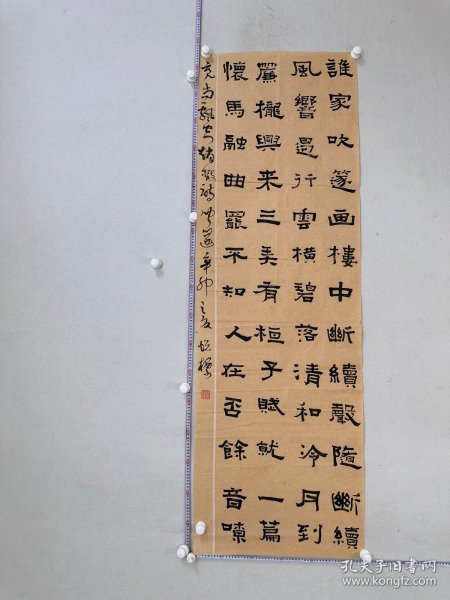 誰家吹篴画樓中斷續聲隨斷續
風響遏行雲橫碧落清和冷月到
簾櫳興来三弄有桓子賦就一篇
懷馬融曲罷不知人在否餘音嘹
亮尚飄空趙嘏詩篴辛卯之夏
孔夫子旧书网
www.kongfz.com